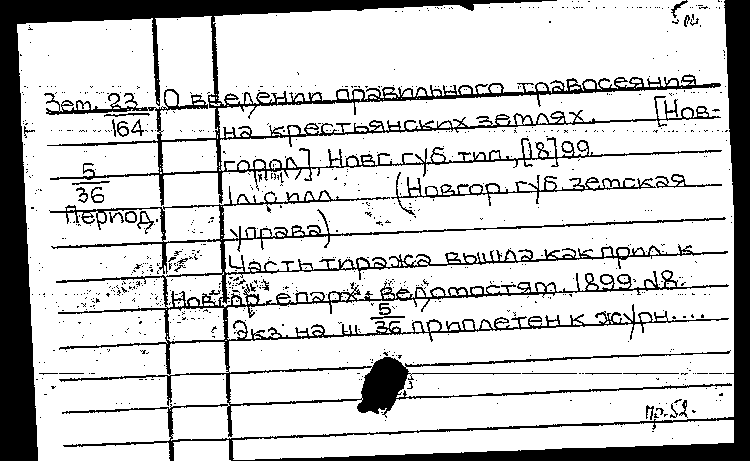 5 
Зем. 23/164 О введении правильного травосеяния
на крестьянских землях. [Нов-
город], Новг. губ. тип., [18]99.
5/36 1 л.
Период. (Новгор. губ. земская
управа).
Часть тиража вышла как прил. к
Новгор. епарх. ведомостям, 1899, №8.
Экз. на ш. 5/36 приплетен к журн....
пр. 52.